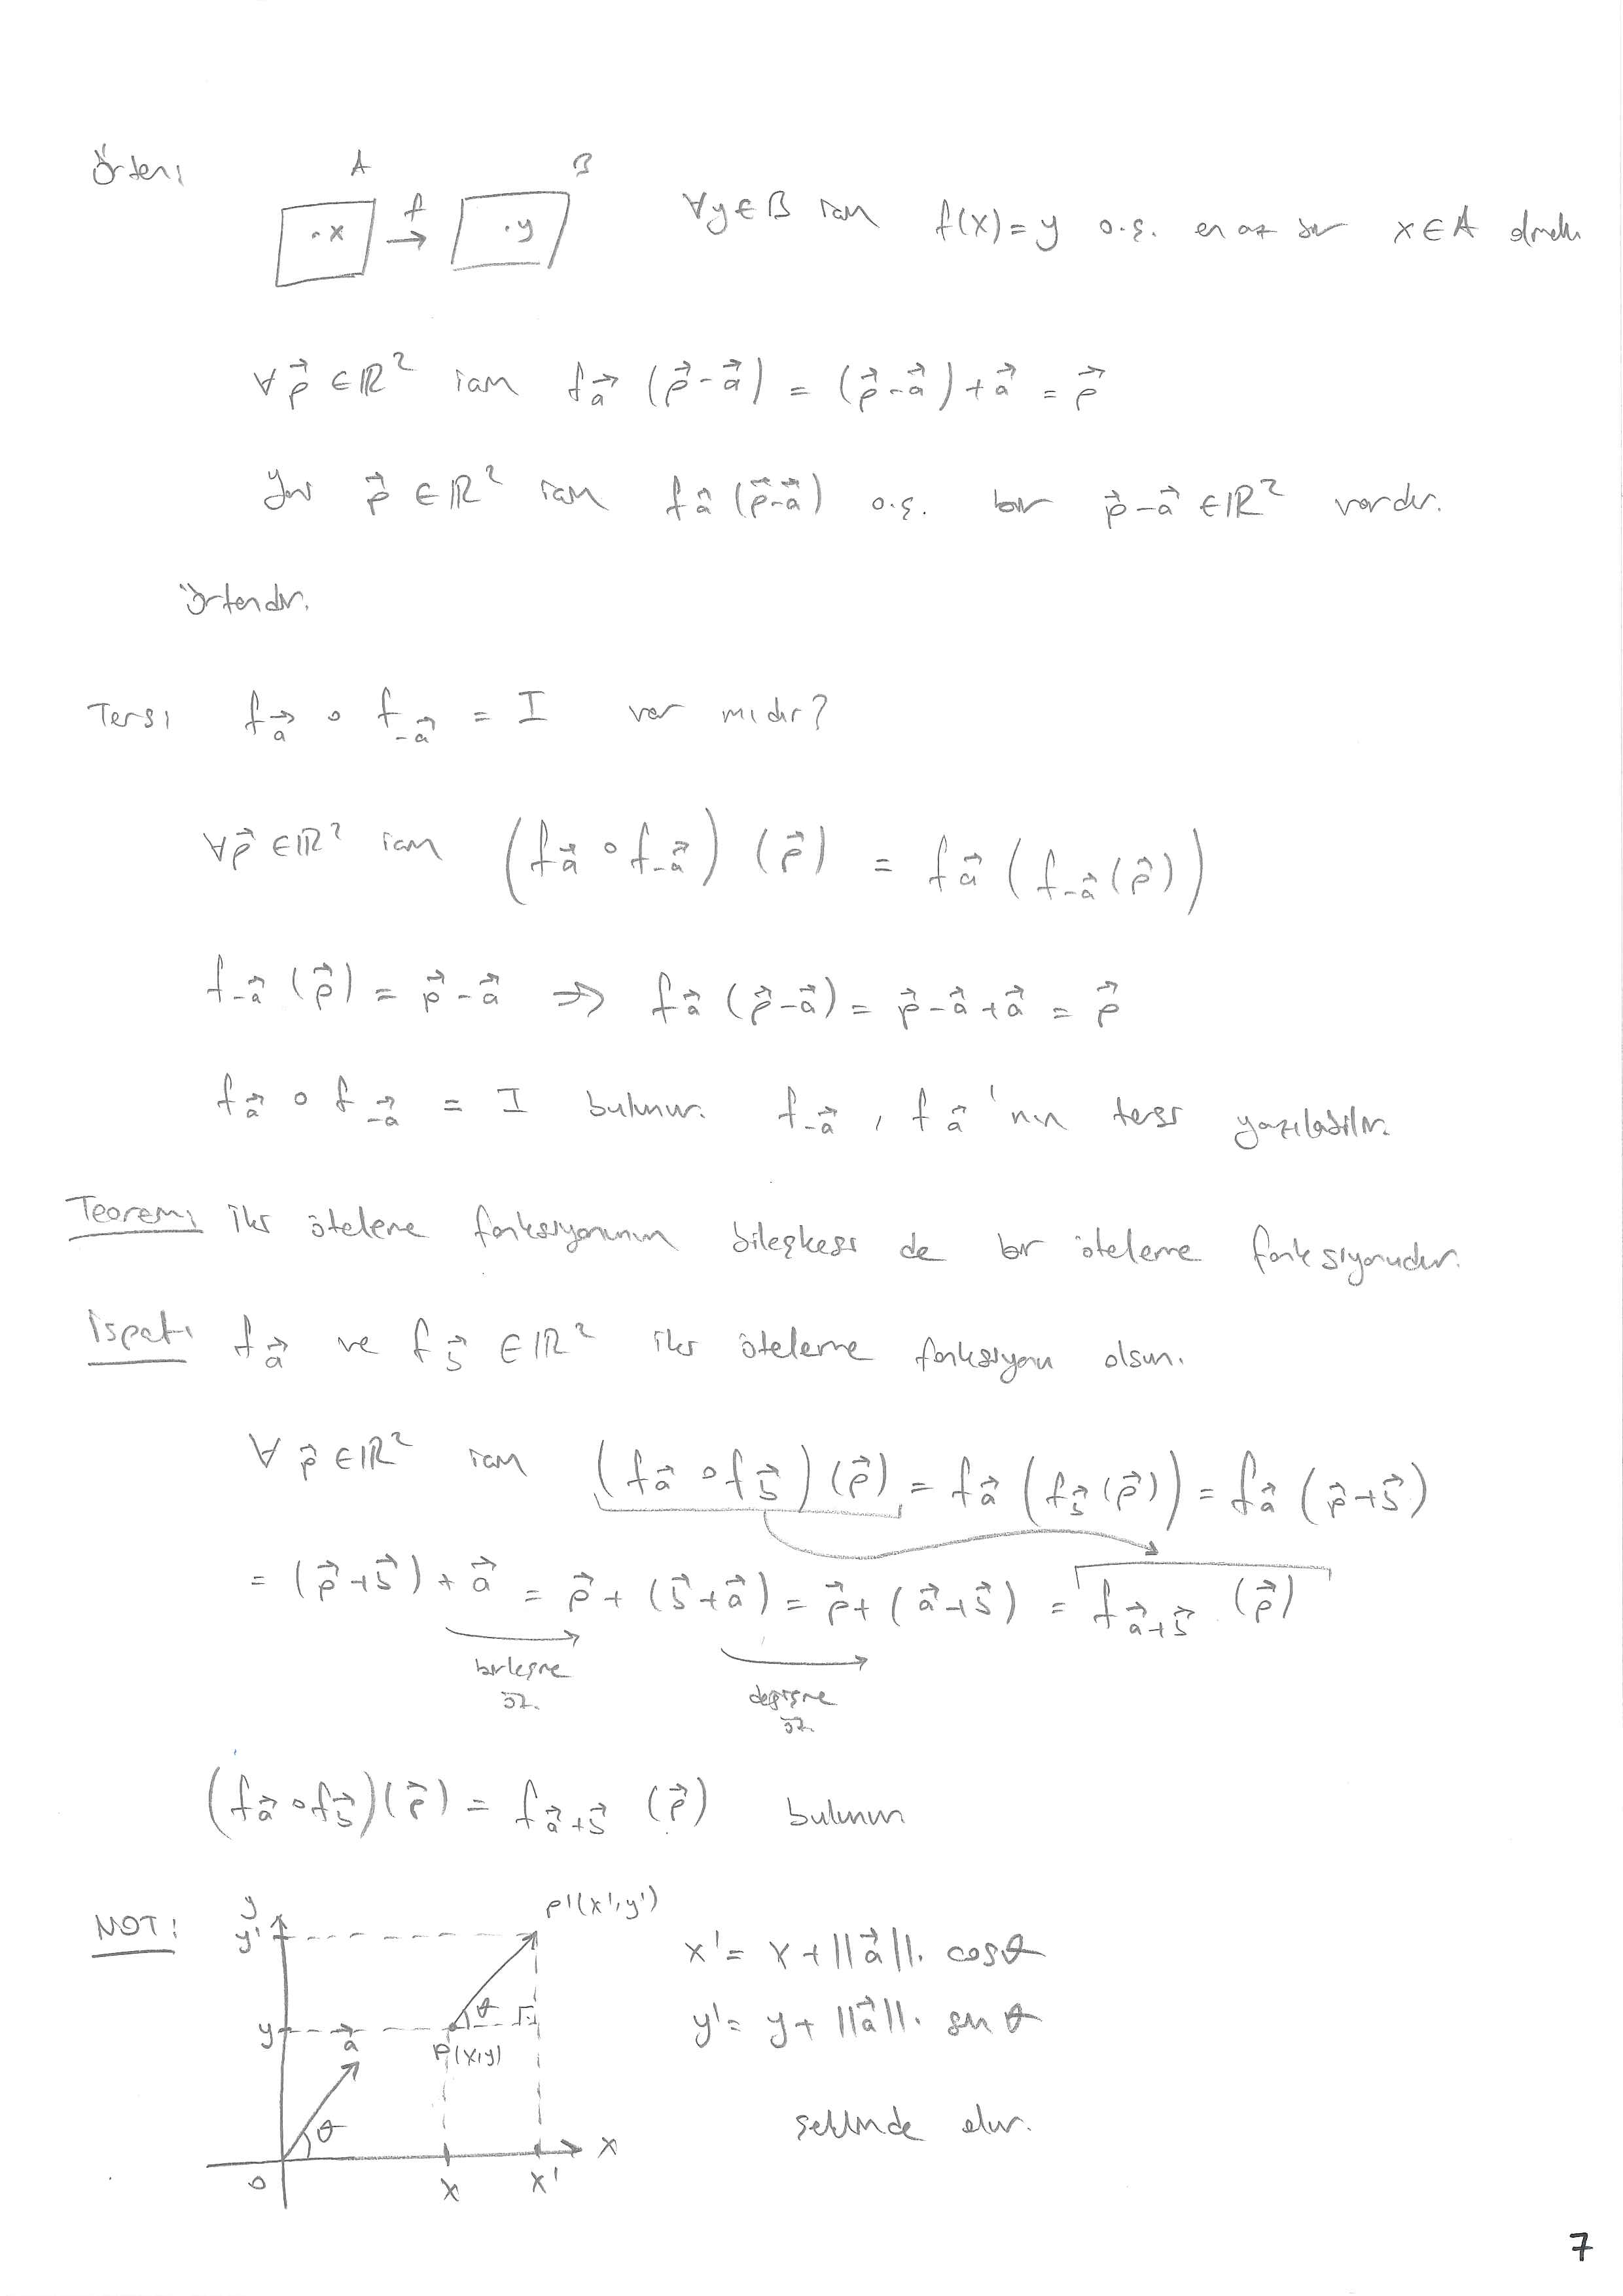 Örten:
A B
.x f → .y
∀y∈B için f(x)=y o.ş. en az bir x∈A olmalı
∀p⃗ ∈ℝ² için f_a⃗ (p⃗-a⃗) = (p⃗-a⃗)+a⃗ = p⃗
p⃗ ∈ℝ² için f_a⃗ (p⃗-a⃗) o.ş. bir p⃗-a⃗ ∈ℝ² vardır.
Örtendir.
Tersi f_a⃗ ∘ f_-a⃗ = I var mıdır?
∀p⃗ ∈ℝ² için (f_a⃗ ∘ f_-a⃗) (p⃗) = f_a⃗ (f_-a⃗(p⃗))
f_-a⃗ (p⃗) = p⃗-a⃗ ⇒ f_a⃗ (p⃗-a⃗) = p⃗-a⃗+a⃗ = p⃗
f_a⃗ ∘ f_-a⃗ = I bulunur. f_-a⃗ , f_a⃗'nın tersi yazılabilir.
Teorem: İki öteleme fonksiyonunun bileşkesi de bir öteleme fonksiyonudur.
İspat: f_a⃗ ve f_b⃗ ∈ℝ² iki öteleme fonksiyonu olsun.
∀ p⃗ ∈ℝ² için (f_a⃗ ∘ f_b⃗) (p⃗) = f_a⃗ (f_b⃗ (p⃗)) = f_a⃗ (p⃗+b⃗)
= (p⃗+b⃗) + a⃗ = p⃗ + (b⃗+a⃗) = p⃗+ (a⃗+b⃗) = f_a⃗+b⃗ (p⃗)
birleşme değişme
öz. öz.
(f_a⃗ ∘ f_b⃗)(p⃗) = f_a⃗+b⃗ (p⃗) bulunur
NOT:
y
y' P'(x',y')
x' = x + ||a⃗||. cosθ
y a⃗ θ
P(x,y)
y' = y + ||a⃗||. sin θ
θ
şeklinde olur.
0 x x' x
7